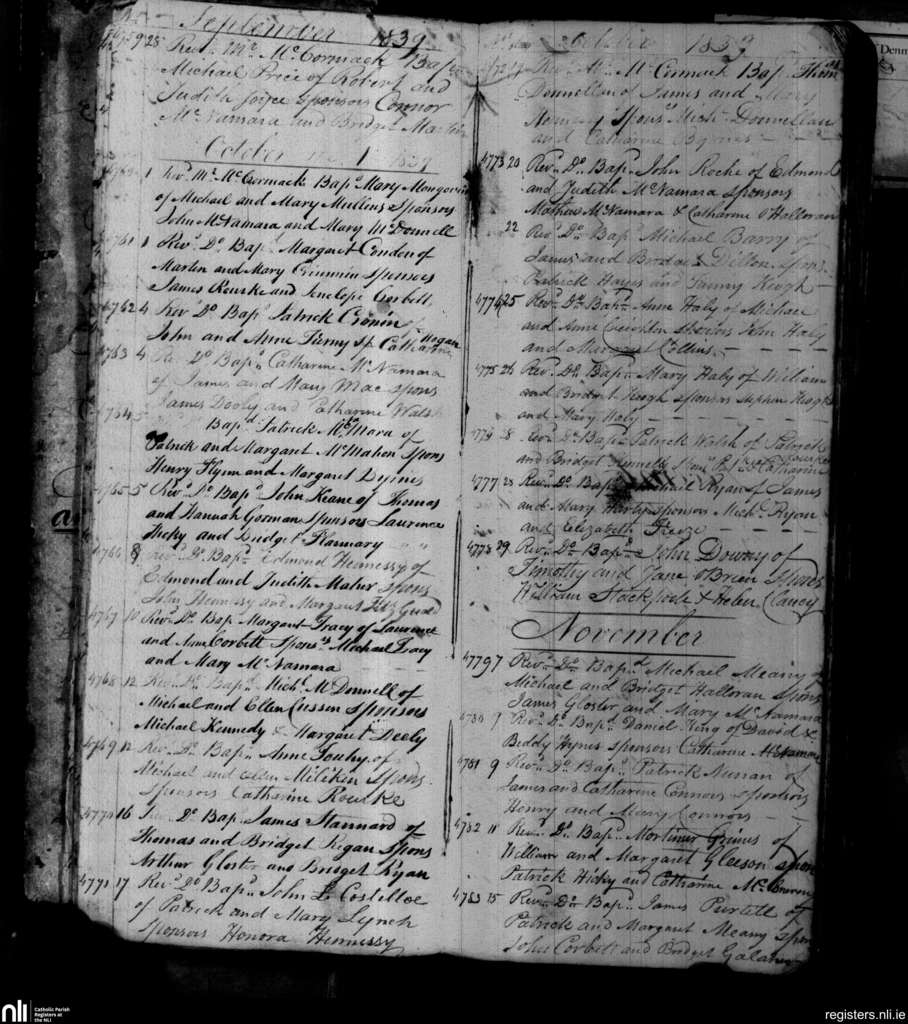 September 1839
4759 28 Revd. Mr. McCormack Bapd.
Michael Price of Robert and
Judith Joyce Sponsors Connor
McNamara and Bridget Martin
October 1 1839
1 Revd. Mr. McCormack Bapd. Mary
of Michael and Mary Mullins Sponsors
John McNamara and Mary McDonnell
4761 1 Revd. Do Bapd. Margaret Condon of
Martin and Mary Sponsors
James Rourke and Penelope Corbett
4762 4 Revd. Do Bapd. Patrick Cronin of
John and Anne Sp. Catharine Hogan
4763 4 Revd. Do Bapd. Catharine McNamara
of James and Mary Mac Spons
James Dooly and Catharine Walsh
4764 5
Bapd. Patrick McMara of
Patrick and Margaret McMahon Spons
Henry Flynn and Margaret
4765 5 Revd. Do Bapd. John Keane of Thomas
and Hannah Gorman Sponsors Laurence
Hicky and Bridget Flannary
4766 8 Revd. Do Bapd. Edmond Hennessy of
Edmond and Judith Maher Spons
John Hennessy and Margaret Fitz Gerald
4767 10 Revd. Do Bapd. Margaret Tracy of Laurence
and Anne Corbett Spons. Michael Tracy
and Mary McNamara
4768 12 Revd. Do Bapd. Michl. McDonnell of
Michael and Ellen Cussen Sponsors
Michael Kennedy & Margaret Deeby
4769 12 Revd. Do Bapd. Anne Touhy of
Michael and Ellen Miliken Spons.
Sponsors Catharine Rourke
4770 16 Do Bapd. James Stannard of
Thomas and Bridget Regan Spons
Arthur Gloster and Bridget Ryan
4771 17 Revd. Do Bapd. John L Costelloe
of Patrick and Mary Lynch
Sponsors Honora Hennessy
October 1839
Revd. Mr. McCormack Bapd. Thomas
Donnellan of James and Mary
Spons Michl. Donnellan
and Catharine Byrnes
4773 20 Revd. Do Bapd. John Roche of Edmond
and Judith McNamara Sponsors
Mathew McNamara & Catharine O'Halloran
22 Revd. Do Bapd. Michael Barry of
James and Dillon Spons
Patrick Hayes and Fanny Keogh
4774 25 Revd. Do Bapd. Anne Haly of Michael
and Anne John Haly
and Margaret Collins
4775 26 Revd. Do Bapd. Mary Haly of William
and Bridget Keogh Sponsors Stephen Keogh
and Mary Haly
28 Revd. Do Bapd. Patrick Walsh of Patrick
and Bridget Kennelly Catharine
4777 28 Revd. Do Bapd. Michael Ryan of James
and Mary Sponsors Michl. Ryan
and Elizabeth
4778 29 Revd. Do Bapd. John Downy of
Timothy and Jane O'Brien Spons
William Stackpoole & Helen Clancy
November
4779 7 Revd. Do Bapd. Michael Meany of
Michael and Bridget Halloran Spons
James Gloster and Mary McNamara
4780 7 Revd. Do Bapd. Daniel King of David &
Biddy Hynes Sponsors Catharine McNamara
4781 9 Revd. Do Bapd. Patrick Nunan of
James and Catharine Connors Sponsors
Henry and Mary Connors
4782 11 Revd. Do Bapd. Mortimer Grimes of
William and Margaret Gleeson Spons
Patrick Hicky and Catharine
4783 15 Revd. Do Bapd. James Purtell of
Patrick and Margaret Meany Spons
John Corbett and Bridget
nli
Catholic Parish
Registers at
the NLI
registers.nli.ie